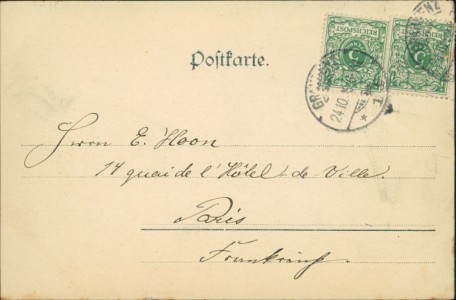 Postkarte.
REICHSPOST
REICHSPOST
24.10.
Herrn E. Hoon
14 quai de l'Hôtel de Ville.
Paris
Frankreich.